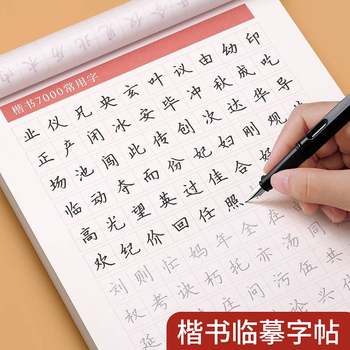 楷书7000常用字
止仪兄央玄叶议由幼印
正产闭冰安毕冲秋成吃
场池闯此传创次达华导
临动夺而份妃妇刚现
高光望英过佳合好
欢纪价回任照
刘则忙妈年全在
权考诀朽托亦汤同
匡间污伍共
延
楷书临摹字帖